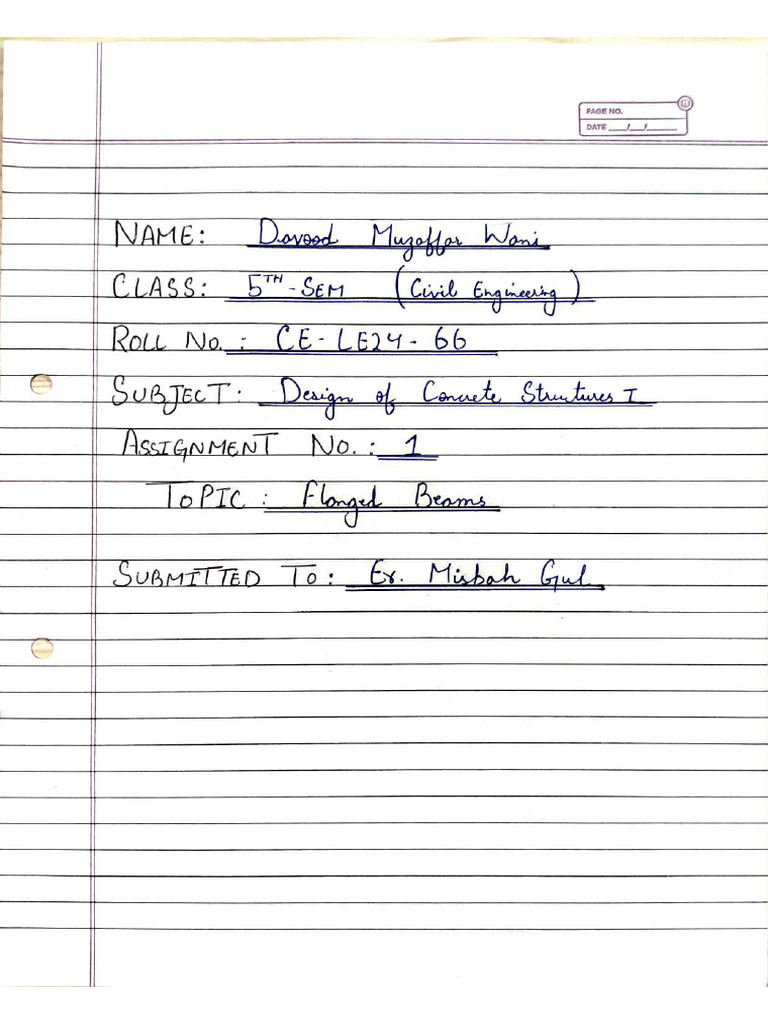 PAGE NO.
DATE ___/___/_____
NAME: Dawood Muzaffar Wani
CLASS: 5TH-SEM (Civil Engineering)
ROLL NO.: CE-LE24-66
SUBJECT: Design of Concrete Structures I
ASSIGNMENT NO.: 1
TOPIC: Flanged Beams
SUBMITTED TO: Er. Misbah Gul